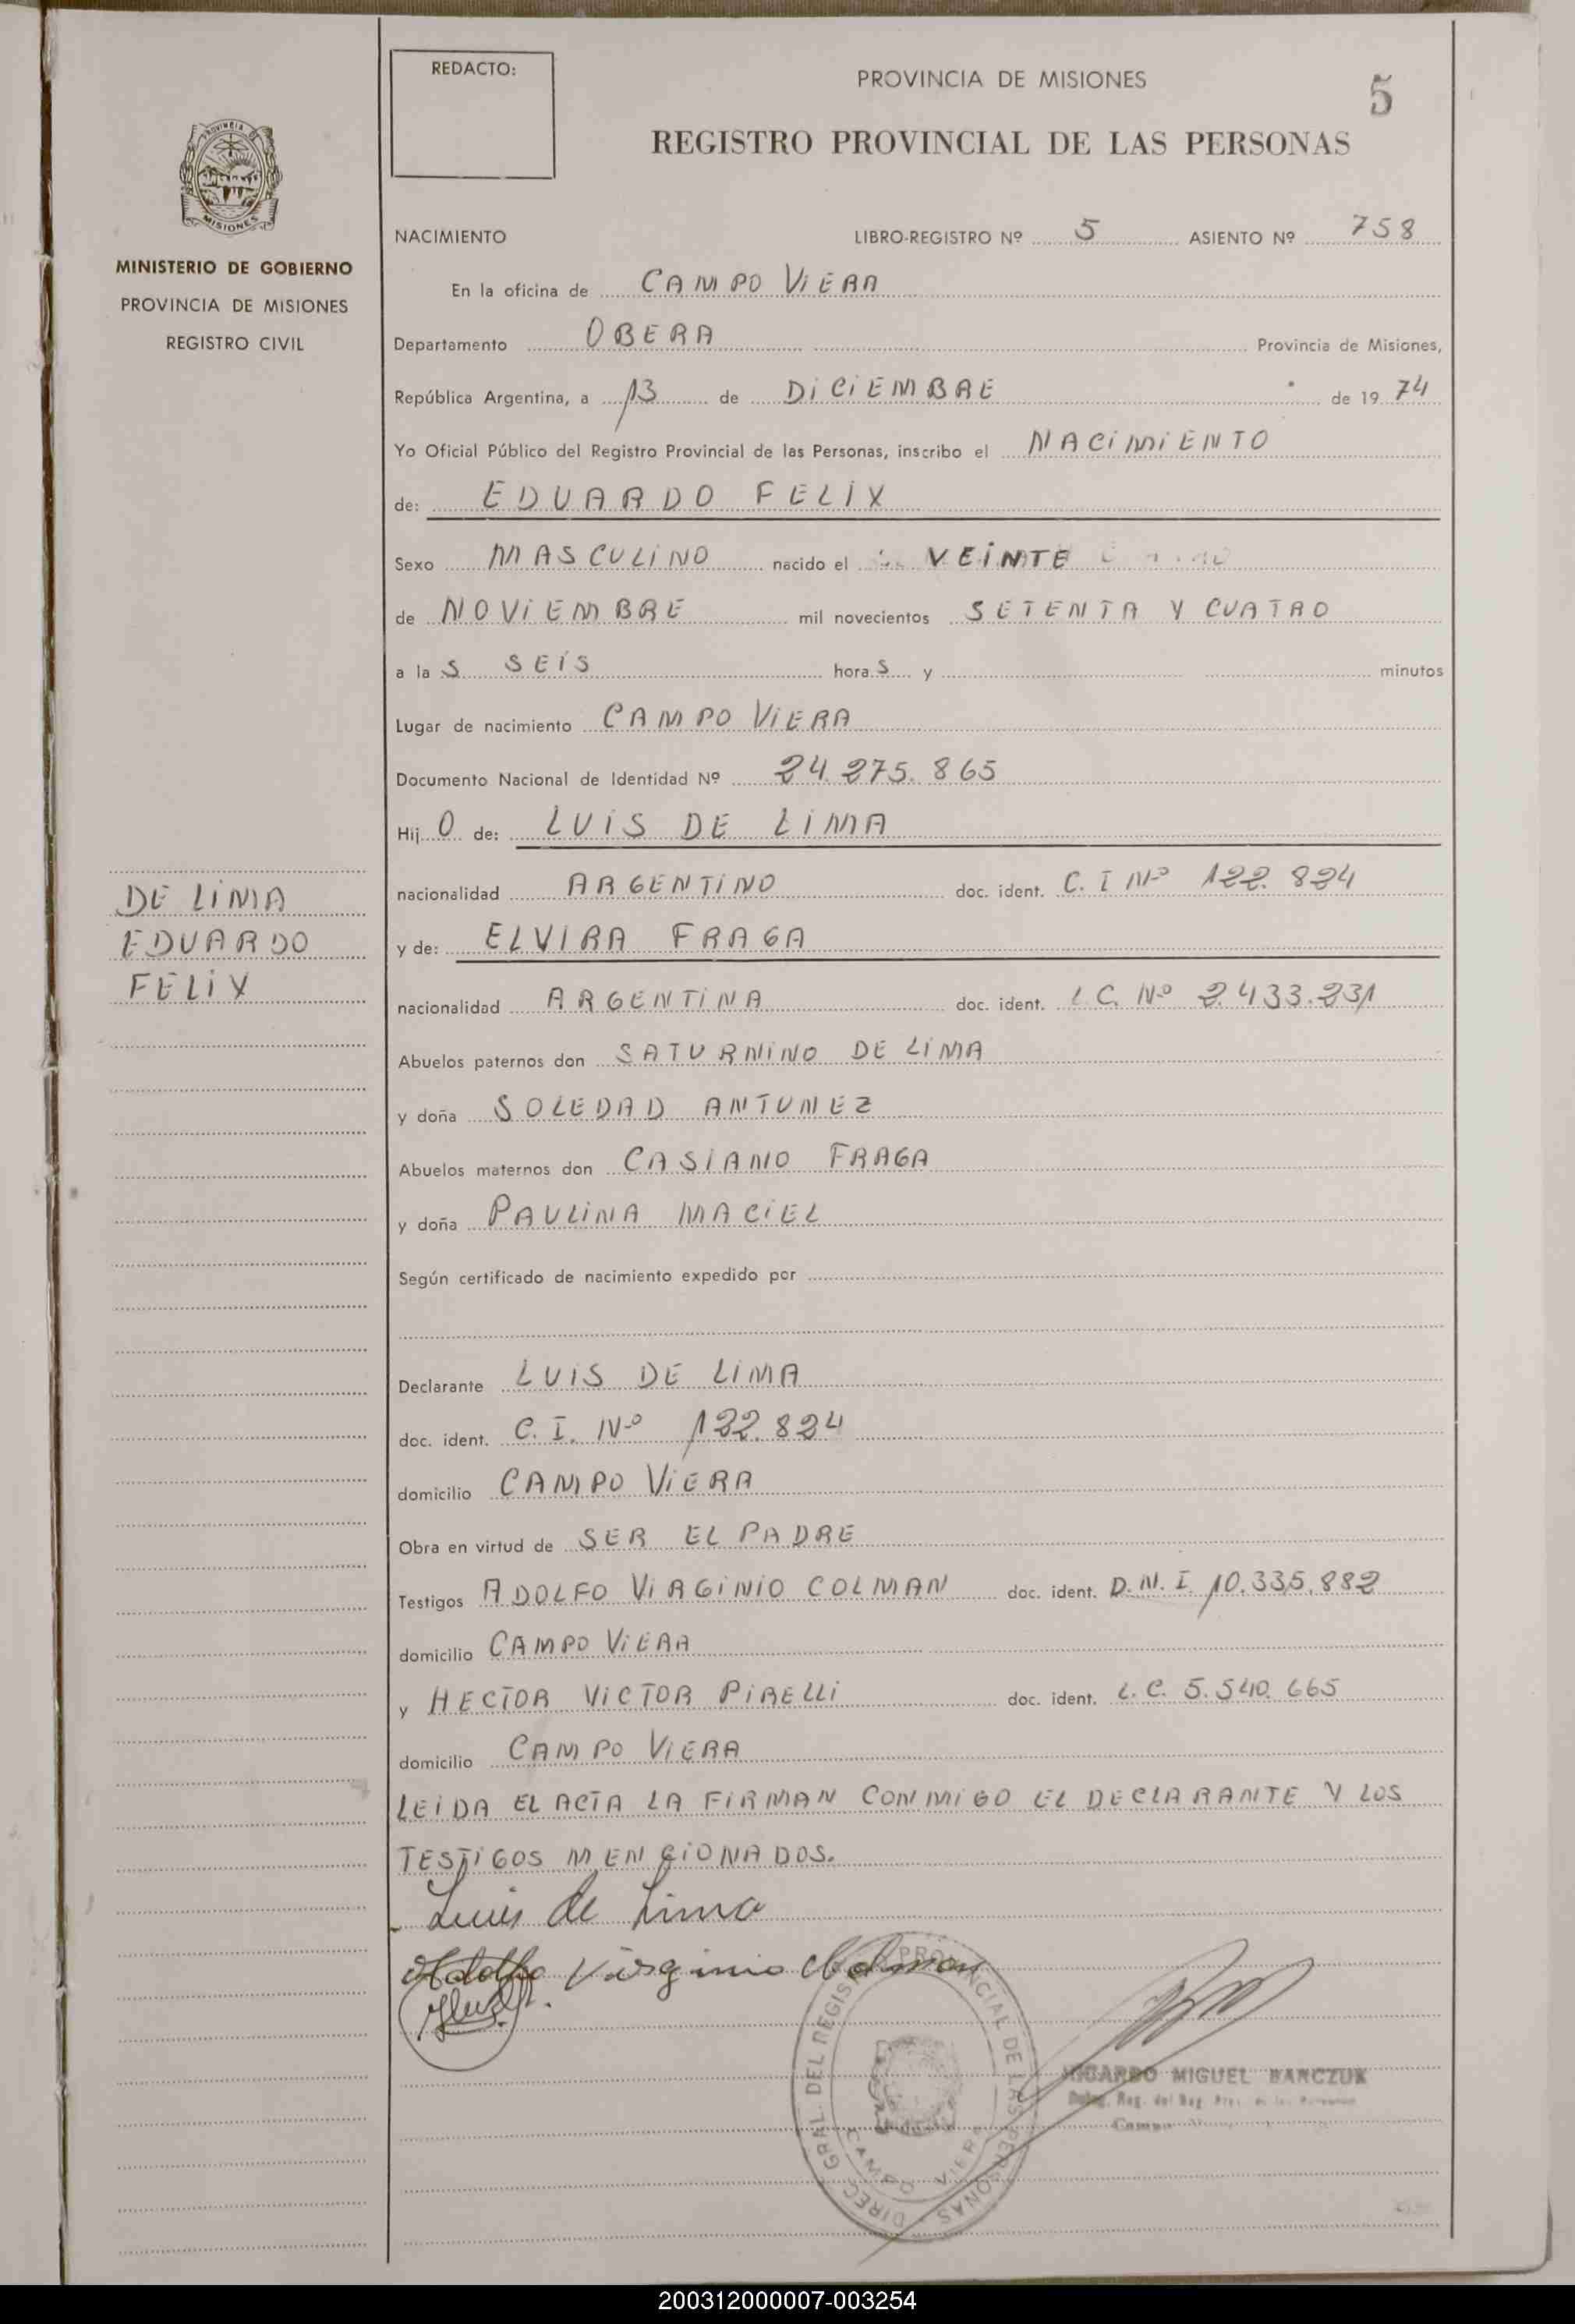 REDACTO:
PROVINCIA DE MISIONES
5
REGISTRO PROVINCIAL DE LAS PERSONAS
PROVINCIA DE
MISIONES
MINISTERIO DE GOBIERNO
PROVINCIA DE MISIONES
REGISTRO CIVIL
NACIMIENTO LIBRO-REGISTRO Nº 5 ASIENTO Nº 758
En la oficina de CAMPO VIERA
Departamento OBERA Provincia de Misiones,
República Argentina, a 13 de DICIEMBRE de 1974
Yo Oficial Público del Registro Provincial de las Personas, inscribo el NACIMIENTO
de: EDUARDO FELIX
Sexo MASCULINO nacido el VEINTE
de NOVIEMBRE mil novecientos SETENTA Y CUATRO
a las SEIS horas y minutos
Lugar de nacimiento CAMPO VIERA
Documento Nacional de Identidad Nº 24.275.865
Hijo de: LUIS DE LIMA
nacionalidad ARGENTINO doc. ident. C. I Nº 122.824
y de: ELVIRA FRAGA
nacionalidad ARGENTINA doc. ident. L.C. Nº 2.433.231
Abuelos paternos don SATURNINO DE LIMA
y doña SOLEDAD ANTUNEZ
Abuelos maternos don CASIANO FRAGA
y doña PAULINA MACIEL
Según certificado de nacimiento expedido por
Declarante LUIS DE LIMA
doc. ident. C. I. Nº 122.824
domicilio CAMPO VIERA
Obra en virtud de SER EL PADRE
Testigos ADOLFO VIRGINIO COLMAN doc. ident. D.N.I. 10.335.882
domicilio CAMPO VIERA
y HECTOR VICTOR PIRELLI doc. ident. L.C. 5.540.665
domicilio CAMPO VIERA
LEIDA EL ACTA LA FIRMAN CONMIGO EL DECLARANTE Y LOS
TESTIGOS MENCIONADOS.
Luis de Lima
Adolfo Virginio Colman
DIREC. GRAL. DEL REGISTRO PROVINCIAL DE LAS PERSONAS
CAMPO VIERA
RICARDO MIGUEL BARCZUK
Campo
DE LIMA
EDUARDO
FELIX
200312000007-003254